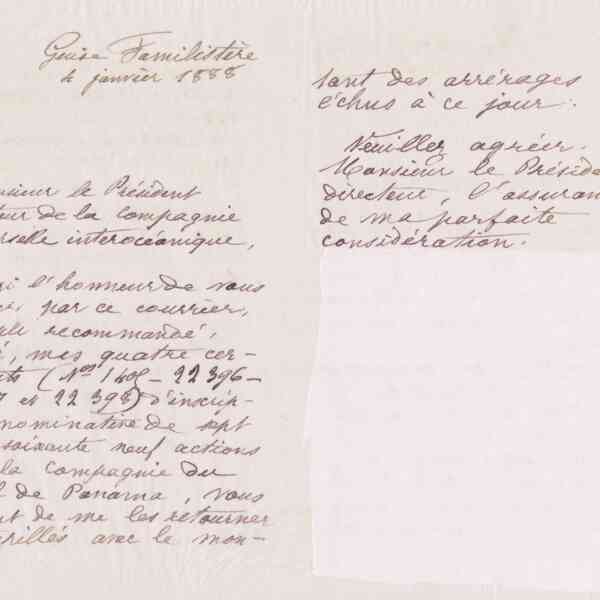 Guise Familistère
4 janvier 1888
nsieur le Président
teur de la Compagnie
rselle interocéanique,
i l'honneur de vous
par ce courrier,
recommandé,
mes quatre cer-
ts (Nos 1405 - 22 396 -
7 et 22 398) d'inscrip-
nominative de sept
soixante neuf actions
la Compagnie du
l de Panama, vous
nt de me les retourner
rillés avec le mon-
tant des arrérages
échus à ce jour.
Veuillez agréer,
Monsieur le Préside
directeur, l'assuran
de ma parfaite
considération.